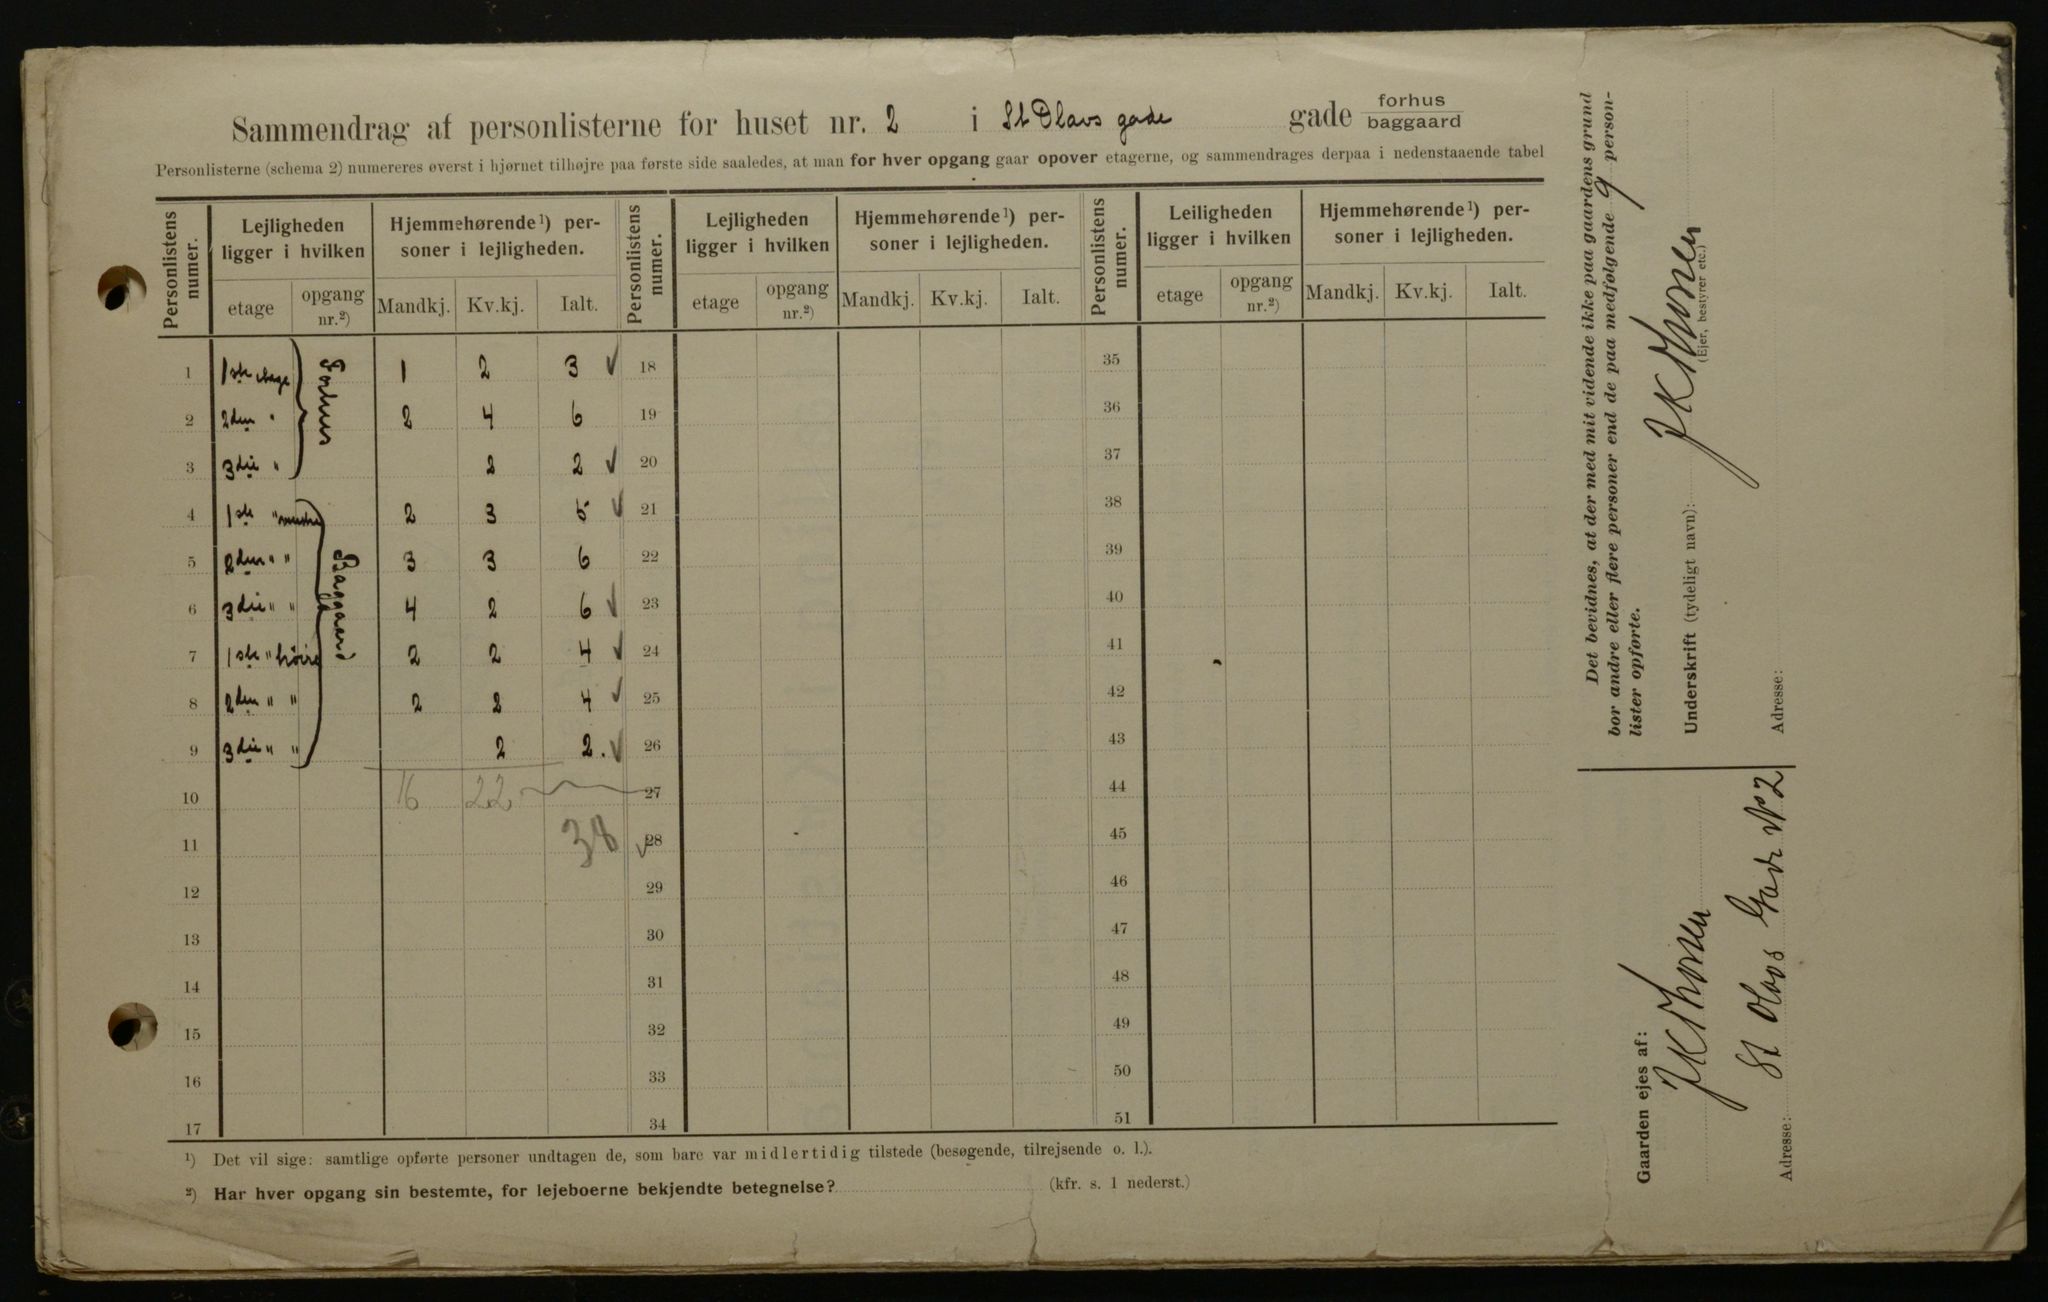 Sammendrag af personlisterne for huset nr. 2 i St Olavs gade gade forhus baggaard
Personlisterne (schema 2) numereres øverst i hjørnet tilhøjre paa første side saaledes, at man for hver opgang gaar opover etagerne, og sammendrages derpaa i nedenstaaende tabel
Personlistens numer. Lejligheden ligger i hvilken Hjemmehørende¹) personer i lejligheden. Personlistens numer. Lejligheden ligger i hvilken Hjemmehørende¹) personer i lejligheden. Personlistens numer. Leiligheden ligger i hvilken Hjemmehørende¹) personer i lejligheden.
etage opgang nr.²) Mandkj. Kv.kj. Ialt. etage opgang nr.²) Mandkj. Kv.kj. Ialt. etage opgang nr.²) Mandkj. Kv.kj. Ialt.
1 1ste etage Forhus 1 2 3 ✓ 18 35
2 2den " 2 4 6 19 36
3 3die " 2 2 ✓ 20 37
4 1ste " Baggaard 2 3 5 ✓ 21 38
5 2den " " 3 3 6 22 39
6 3die " " 4 2 6 ✓ 23 40
7 1ste " høire 2 2 4 ✓ 24 41
8 2den " " 2 2 4 ✓ 25 42
9 3die " " 2 2. ✓ 26 43
10 16 22 27 44
11 38 ✓ 28 45
12 29 46
13 30 47
14 31 48
15 32 49
16 33 50
17 34 51
¹) Det vil sige: samtlige opførte personer undtagen de, som bare var midlertidig tilstede (besøgende, tilrejsende o. l.).
²) Har hver opgang sin bestemte, for lejeboerne bekjendte betegnelse? (kfr. s. 1 nederst.)
Det bevidnes, at der med mit vidende ikke paa gaardens grund
bor andre eller flere personer end de paa medfølgende 9 person-
lister opførte.
Underskrift (tydeligt navn): J K Thorsen
(Ejer, bestyrer etc.)
Adresse:
Gaarden ejes af:
J K Thorsen
Adresse: St Olavs Gade No 2